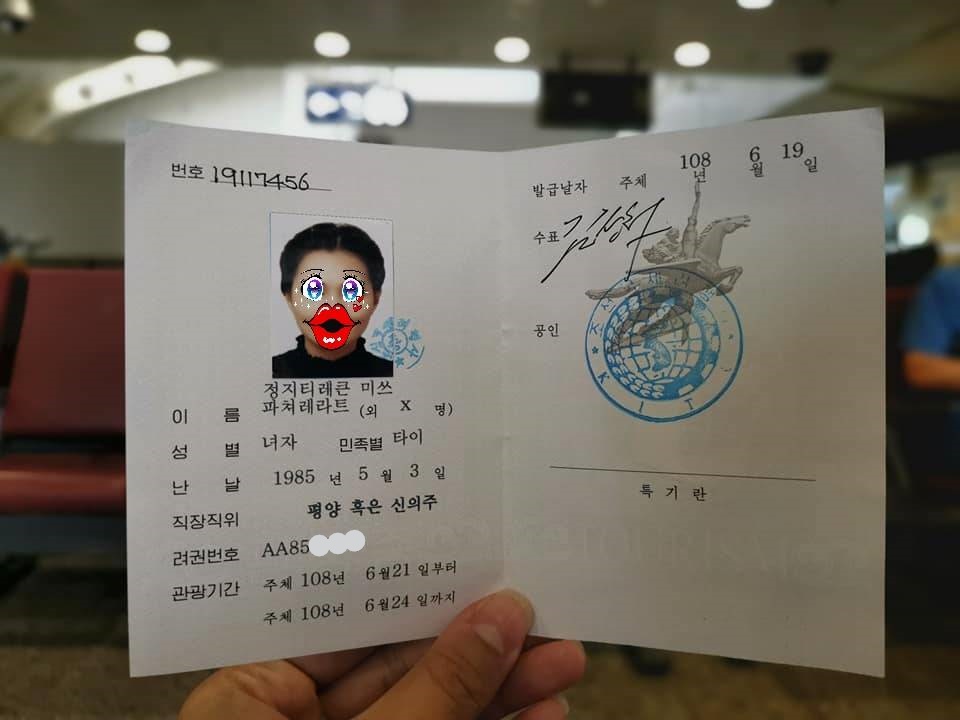 번호 19117456
정지티레큰 미쓰
이 름 파쳐레라트 (외 X 명)
성 별 녀자 민족별 타이
난 날 1985 년 5 월 3 일
직장직위 평양 혹은 신의주
려권번호 AA85
관광기간 주체 108년 6월21 일부터
주체 108년 6월24 일까지
발급날자 주체 108 년 6 월 19 일
수표
공인
K I T
특 기 란